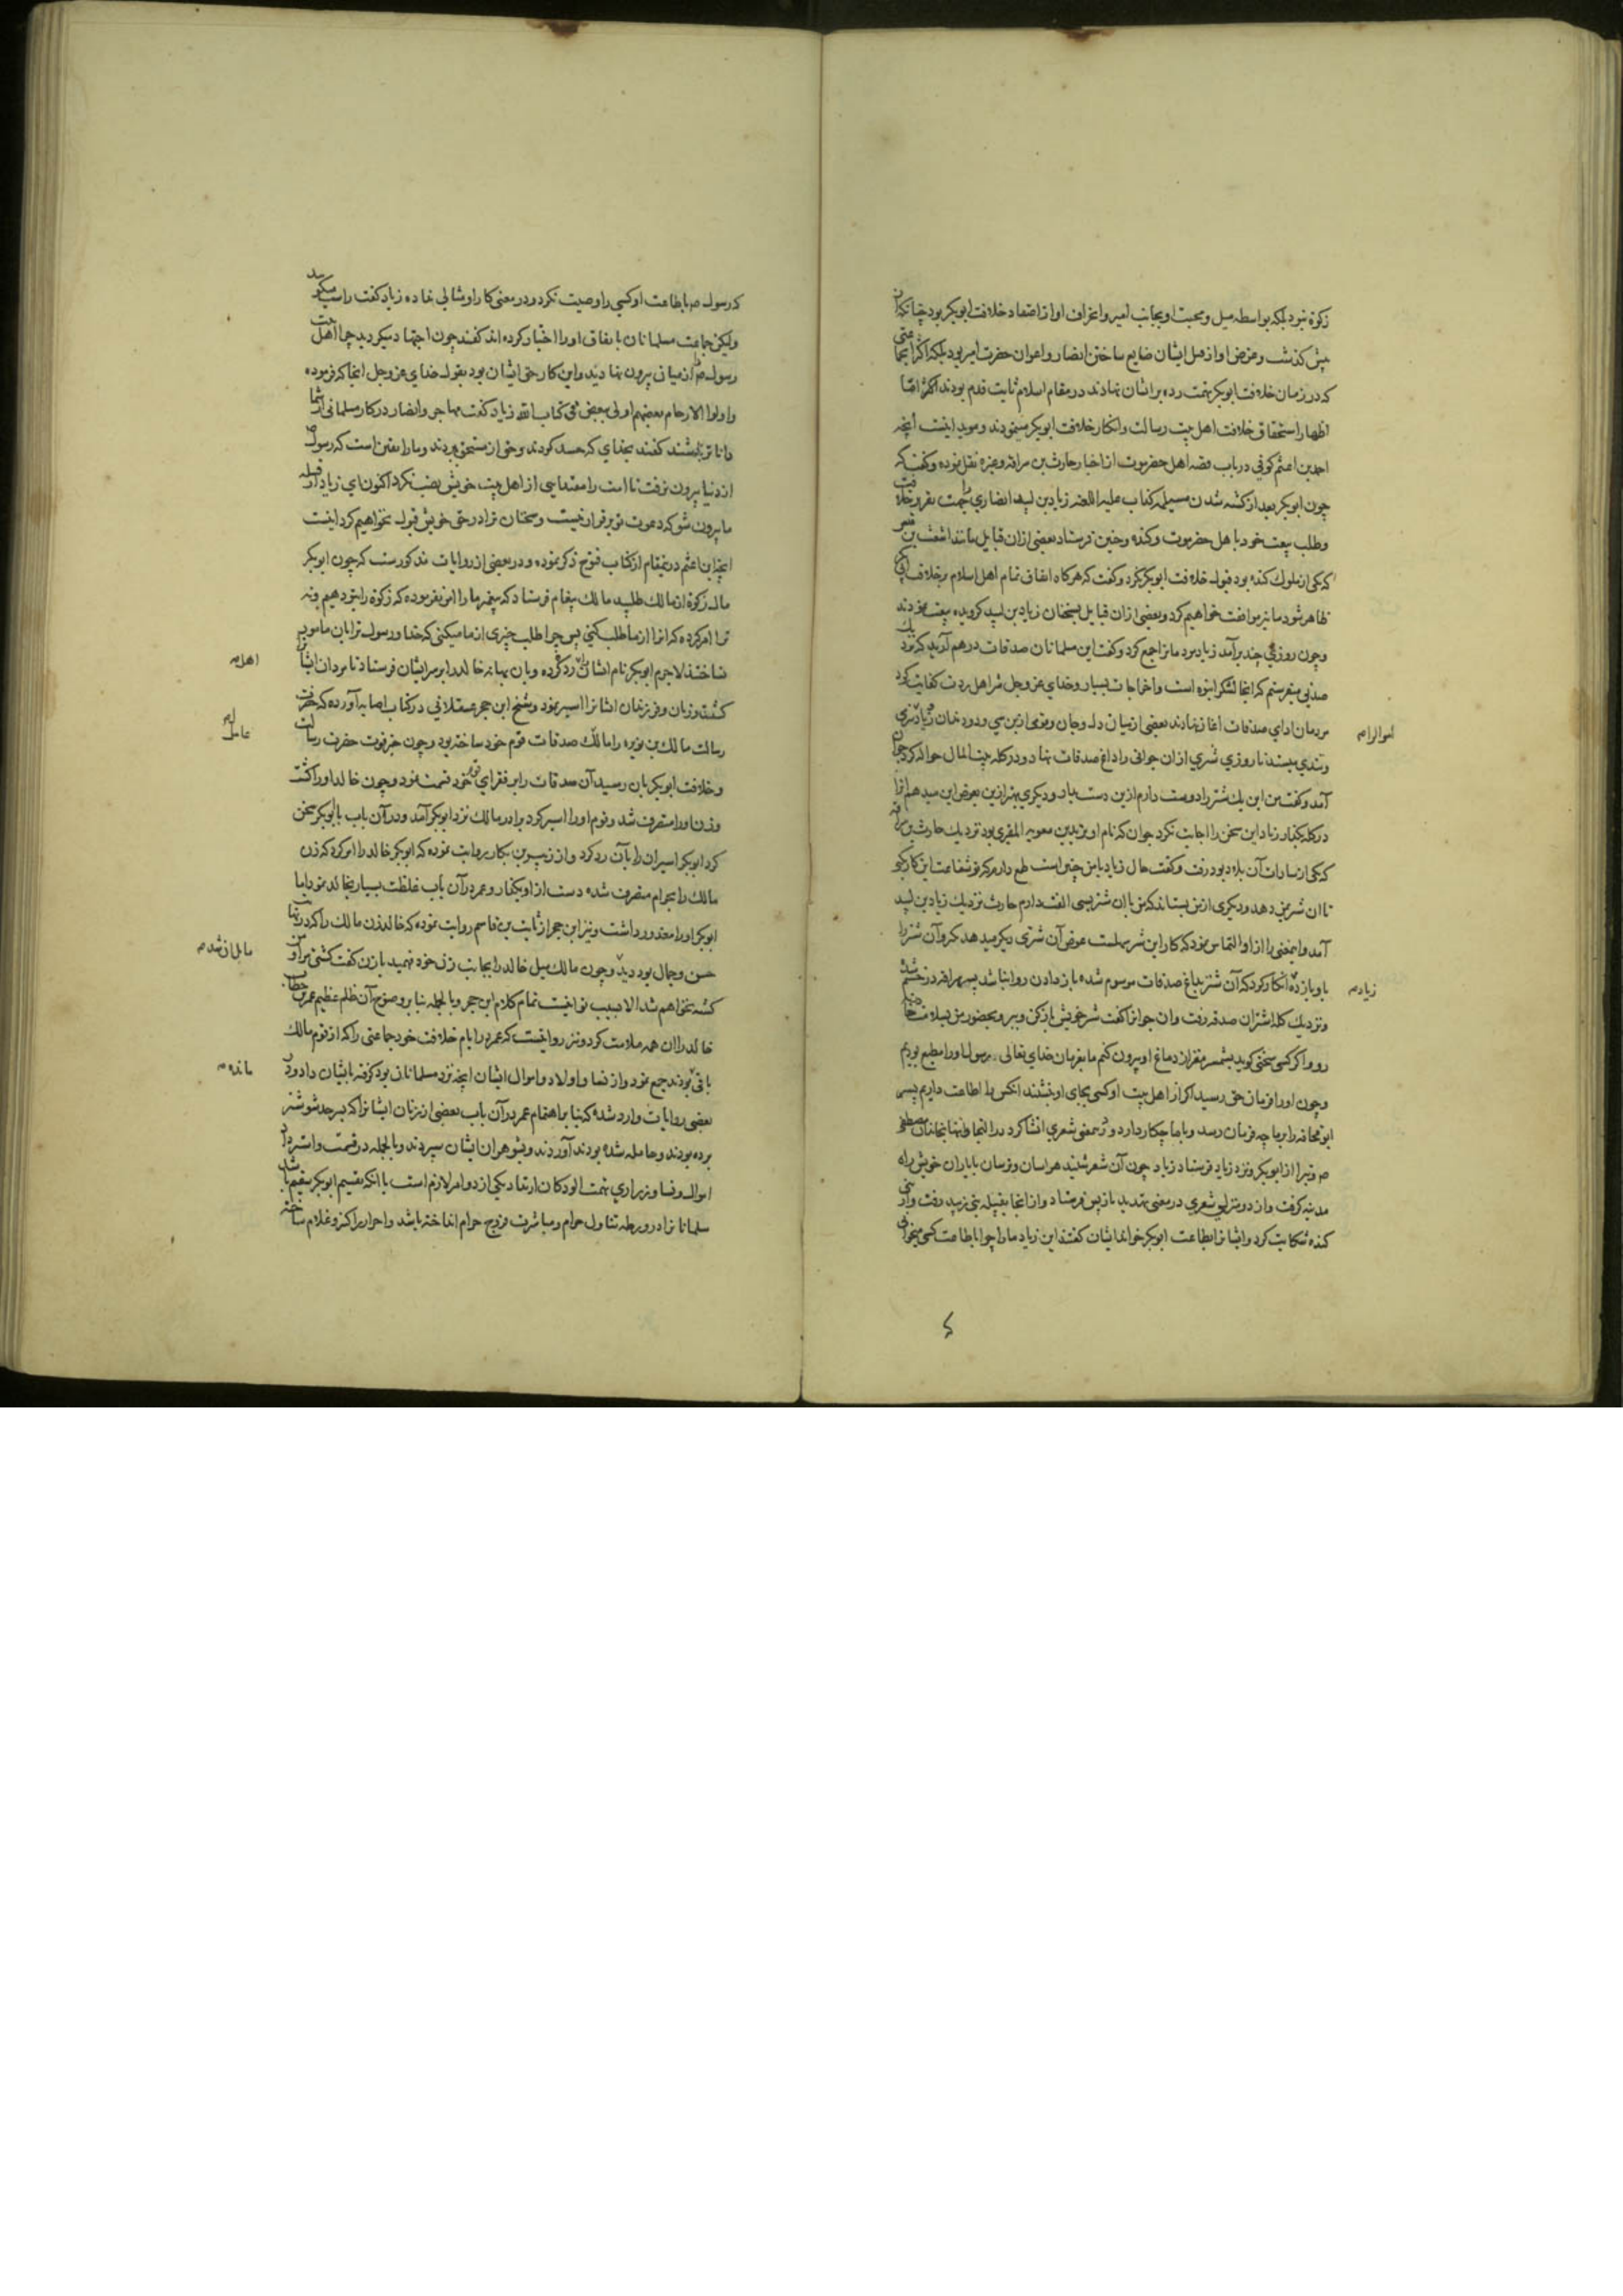 زکوة نبود بلکه بواسطه میل و محبت او بجانب امیر و انحراف او از اعتقاد خلافت ابوبکر بود چنانکه
پیش گذشت و غرض او از قتل ایشان ضایع ساختن انصار و اعوان حضرت امیر بود بلکه اکثر جماعتی
که در زمان خلافت ابوبکر تهمت رده بر ایشان نهادند در مقام اسلام ثابت قدم بودند
اظهار استحقاق خلافت اهل بیت رسالت و انکار خلافت ابوبکر مینمودند و موید اینست آنچه
احمد بن اعثم کوفی در باب قصه اهل حضرموت از اخبار حارث بن سراقه و غیره نقل نموده و گفته که
چون ابوبکر بعد از کشته شدن مسیلمه کذاب علیه اللعنه زیاد بن لبید انصاری را جهت تقریر خلافت
و طلب بیعت خود با هل حضرموت و کنده فرستاد بعضی ازان قبایل مانند اشعث بن قیس
که یکی از ملوک کنده بود قبول خلافت ابوبکر نکرد و گفت که هرگاه اتفاق تمام اهل اسلام بر خلافت
ظاهر شود ما نیز موافقت خواهیم کرد و بعضی ازان قبایل بسخنان زیاد بن لبید گرویده بیعت نمودند
و چون روزی چند برآمد زیاد مردمانرا جمع کرد و گفت این مسلمانان صدقات درهم آرید که نزدیک
صدیق میفرستم که آنجا لشکر انبوه است و اخراجات بسیار و خدای عز و جل شر اهل ردت کفایت کرد
مردمان ادای صدقات آغاز نهادند بعضی از میان دل و جان و قومی از بیم
اموالرا م
و تندی میستد تا روزی شتری ازان جوانی را داغ صدقات نهاد و در گله بیت المال حواله کرد جوان
آمد و گفت من این یک شتر را دوست دارم ازین دست بدار و دیگری بهتر ازین بعوض این میدهم
در گله بگذار زیاد این سخن را اجابت نکرد جوان که نام او یزید بن معویه المقری بود نزدیک حارث بن سراقه
که یکی از سادات آن بلاد بود رفت و گفت حال زیاد با من چنین است طمع دارم که تو شفاعت این کار کنی
تا آن شتر بمن دهد و دیگری از من بستاند که من با آن شتر بسی الفت دارم حارث نزدیک زیاد بن لبید
آمد و این معنی را از او التماس نمود که کار این شتر سهلست عوض آن شتری دیگر میدهد
زیاد م
انکار کرد که آن شتر بداغ صدقات موسوم شده باز دادن روا نباشد پسر سراقه در خشم شد
و نزدیک گله اشتران صدقه رفت و آن جوانرا گفت شتر خویش باز کن و ببر و بحضور من
رو و اگر کسی سخنی گوید بشمشیر مغز از دماغ او بیرون کنم ما بفرمان خدای تعالی رسول او را مطیع بودیم
و چون او را فرمان حق رسید اگر از اهل بیت او کسی بجای او بنشیند آنکس را اطاعت داریم پسر
ابو قحافه را بر ما چه فرمان رسد و با ما چکار دارد و درین معنی شعری انشا کرد
و تبرا از ابوبکر و نزد زیاد فرستاد زیاد چون آن شعر شنید هراسان و ترسان با یاران خویش راه
مدینه گرفت و از دو منزلی شعری در معنی تهدید باز پس فرستاد و از آنجا بقبیله بنی زبید رفت و از بنی
کنده شکایت کرد و ایشانرا بطاعت ابوبکر خواند ایشان گفتند این زیاد ما را چرا بطاعت کسی میخوانی
که رسول ص بطاعت او کسی را وصیت نکرد و در معنی کار او مثالی نداده زیاد گفت راست میگویید
ولیکن جماعت مسلمانان باتفاق او را اختیار کرده اند گفتند چون اجتهاد میکردید چرا اهل بیت
رسول را از میان بیرون نهادید و این کار حق ایشان بود بقول خدای عز و جل آنجا که فرموده
و اولوا الارحام بعضهم اولی ببعض فی کتاب الله زیاد گفت مهاجر و انصار در کار مسلمانی از شما
داناتر باشند گفتند بخدای که حسد کردند و حق از مستحق بردند و ما را یقین است که رسول ص
از دنیا بیرون نرفت تا امت را مقتدایی از اهل بیت خویش نصب نکرد اکنون ای زیاد از قبیله
ما بیرون شو که دعوت تو برقرار نیست و سخنان ترا در حق خویش قبول نخواهیم کرد اینست
آنچه ابن اعثم درین مقام از کتاب فتوح ذکر نموده و در بعضی از روایات مذکورست که چون ابوبکر
مال زکوة از مالک طلبید مالک پیغام فرستاد که پیغمبر ما را امر نفرموده که زکوة را بتو دهیم و نه
ترا امر کرده که آنرا از ما طلب کنی پس چرا طلب چیزی از ما میکنی که خدا و رسول ترا بان مامور
نساخته اند لاجرم ابوبکر نام ایشان را اهل رده کرده و بان بهانه خالد را بر سر ایشان فرستاد تا مردان ایشانرا
اهل م
کشت و زنان و فرزندان ایشانرا اسیر نمود و شیخ ابن حجر عسقلانی در کتاب اصابه آورده که حضرت
رسالت مالک بن نویره را صدقات قوم خود ساخته بود و چون خبر فوت حضرت رسالت
عامل
و خلافت ابوبکر بان رسید آن صدقات را بر فقرای قوم خود قسمت نمود و چون خالد او را کشت
و زن او را متصرف شد و قوم او را اسیر کرد برادر مالک نزد ابوبکر آمد و در آن باب با ابوبکر سخن
کرد ابوبکر اسیران را بآن رد کرد و از زبیر بن بکار روایت نموده که ابوبکر خالد را امر کرد که زن
مالک را بحرام متصرف شده دست از او بگذار و عمر در آن باب غلظت بسیار بخالد نمود اما
ابوبکر او را معذور داشت و نیز ابن حجر از ثابت بن قاسم روایت نموده که خالد زن مالک را که در نهایت
حسن و جمال بود دید و چون مالک میل خالد را بجانب زن خود فهمید با زن گفت کشتی مرا و من
مایل ان شد م
کشته نخواهم شد الا بسبب تو اینست تمام کلام ابن حجر و بالجمله بنا بر وضوح آن ظلم عظیم عمر بن خطاب
خالد را ان همه ملامت کرد و نیز روایتست که عمر در ایام خلافت خود جماعتی را که از قوم مالک
باقی بودند جمع نمود و از نسا و اولاد و اموال ایشان آنچه نزد مسلمانان بود گرفته بایشان داد و در
مانده م
بعضی روایات وارد شده که بنا بر اهتمام عمر در آن باب بعضی از زنان ایشانرا که بسرحد شوشتر
برده بودند و حامله شده بودند آوردند و بشوهران ایشان سپردند و بالجمله در قسمت و استرداد
اموال و نسا و ذراری بتهمت ارتداد یکی از دو امر لازم است یا آنکه تقسیم ابوبکر
مسلمانانرا در ورطه تناول حرام و مباشرت فروج حرام انداخته باشد و احرار را کنیز و غلام ساخته